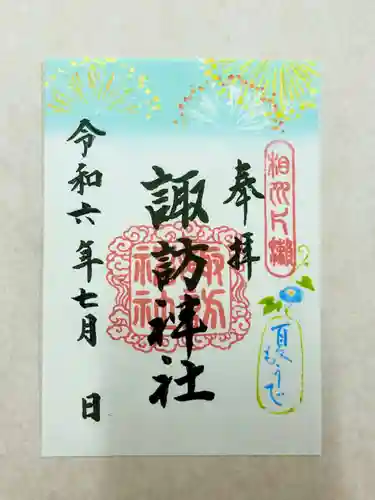 相州片瀬
奉拝
夏もうで
諏訪神社
諏訪神社
令和六年七月 日